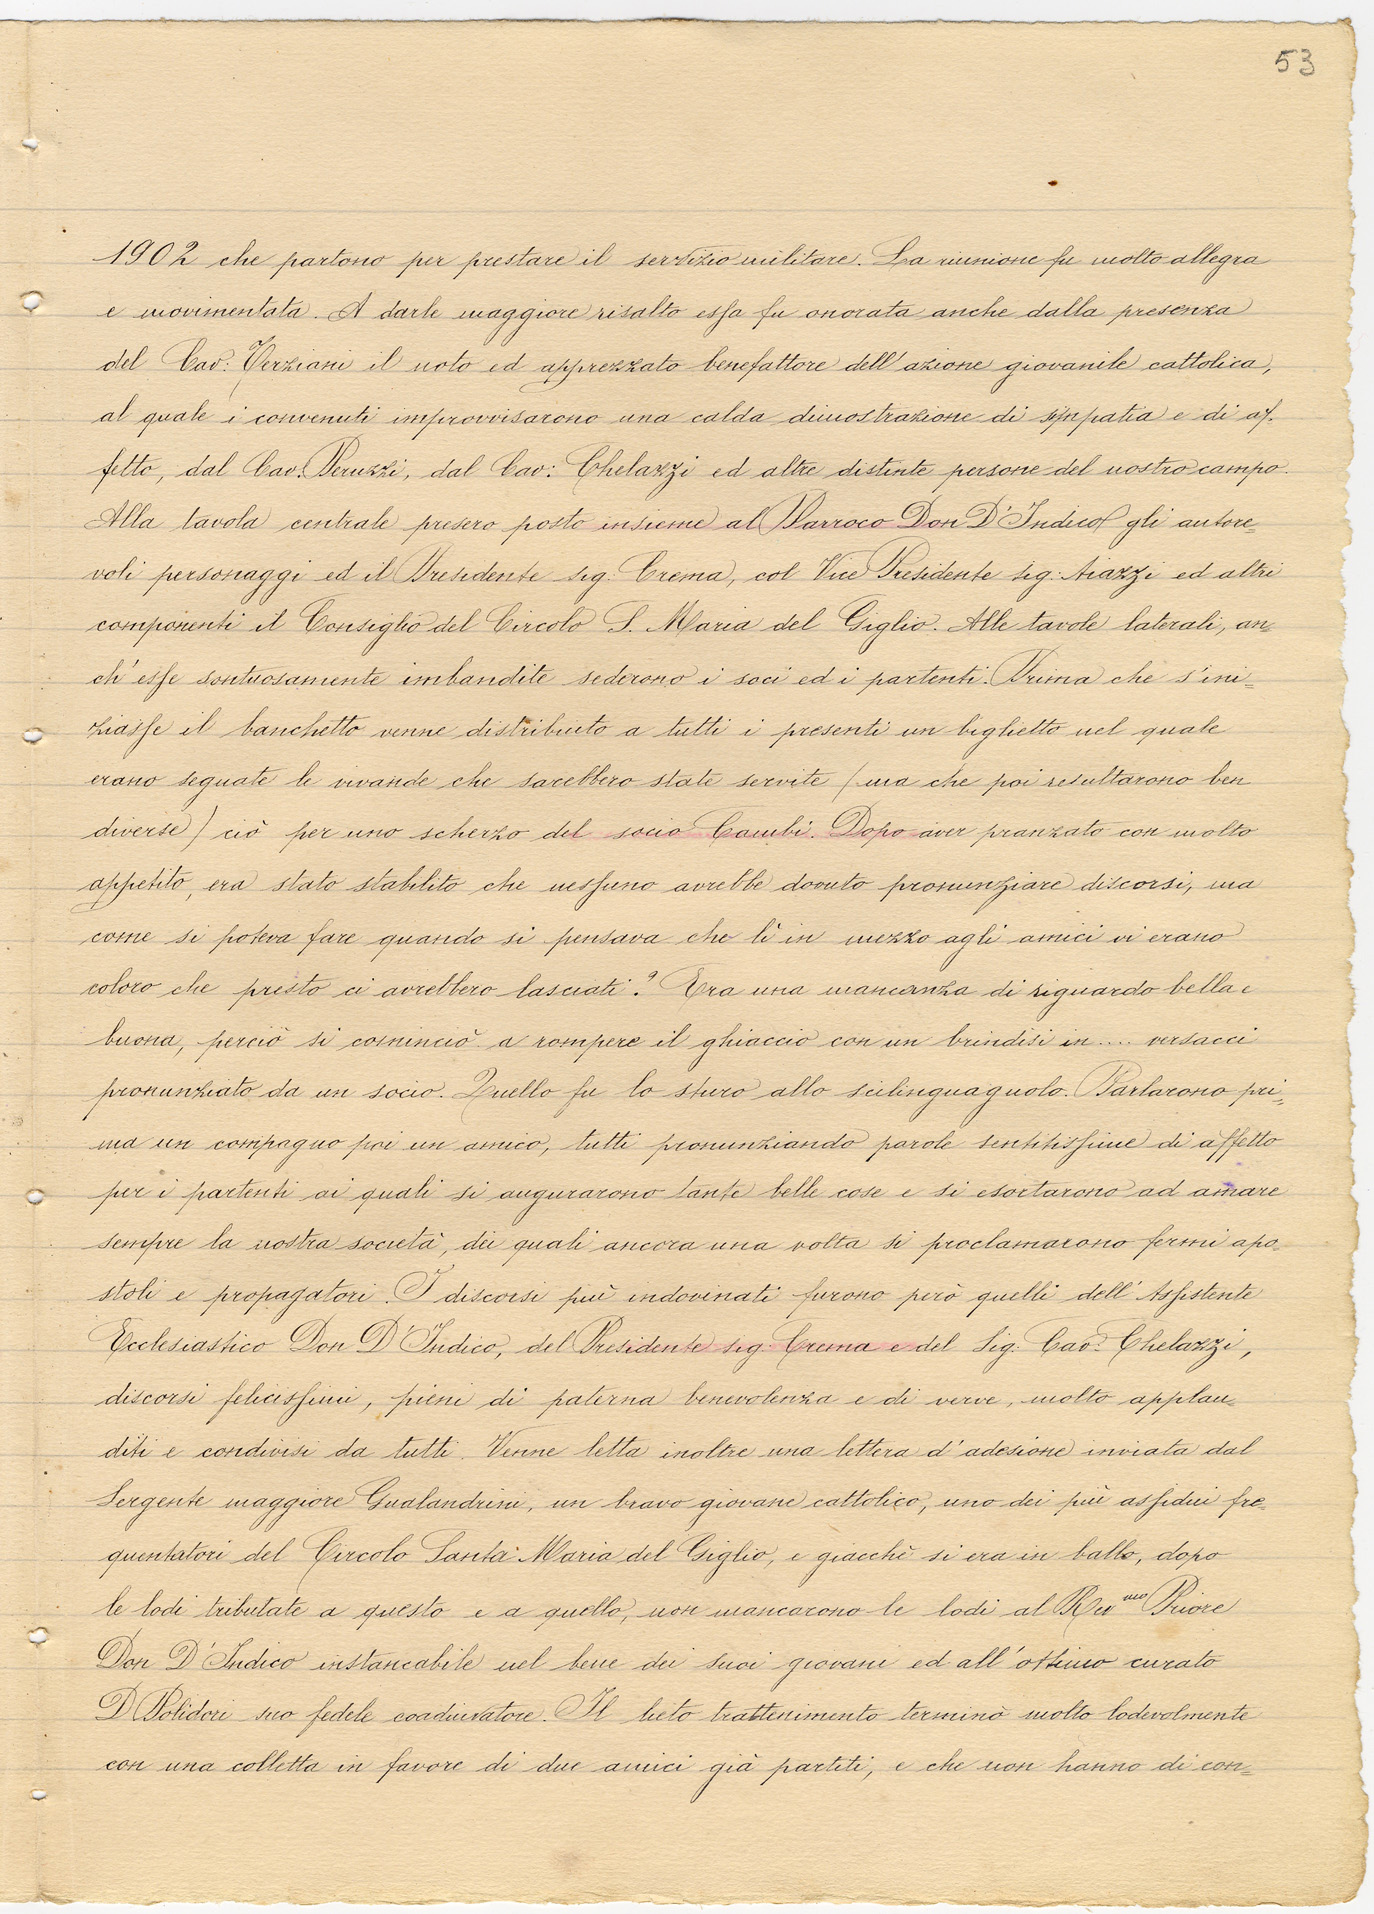 53
1902 che partono per prestare il servizio militare. La riunione fu molto allegra
e movimentata. A darle maggiore risalto essa fu onorata anche dalla presenza
del Cav: Verziani il noto ed apprezzato benefattore dell'azione giovanile cattolica,
al quale i convenuti improvvisarono una calda dimostrazione di simpatia e di af-
fetto, dal Cav. Peruzzi, dal Cav: Chelazzi ed altre distinte persone del nostro campo.
Alla tavola centrale presero posto insieme al Parroco Don D'Indico gli autore=
voli personaggi ed il Presidente sig. Crema, col Vice Presidente sig: Aiazzi ed altri
componenti il Consiglio del Circolo S. Maria del Giglio. Alle tavole laterali, an=
ch'esse sontuosamente imbandite sederono i soci ed i partenti. Prima che s'ini=
ziasse il banchetto venne distribuito a tutti i presenti un biglietto nel quale
erano segnate le vivande che sarebbero state servite (ma che poi resultarono ben
diverse) ciò per uno scherzo del socio Cambi. Dopo aver pranzato con molto
appetito, era stato stabilito che nessuno avrebbe dovuto pronunziare discorsi, ma
come si poteva fare quando si pensava che lì in mezzo agli amici vi erano
coloro che presto ci avrebbero lasciati? Era una mancanza di riguardo bella e
buona, perciò si cominciò a rompere il ghiaccio con un brindisi in .... versacci
pronunziato da un socio. Quello fu lo sturo allo scilinguagnolo. Parlarono pri=
ma un compagno poi un amico, tutti pronunziando parole sentitissime di affetto
per i partenti ai quali si augurarono tante belle cose e si esortarono ad amare
sempre la nostra società, dei quali ancora una volta si proclamarono fermi apo=
stoli e propagatori. I discorsi più indovinati furono però quelli dell'Assistente
Ecclesiastico Don D'Indico, del Presidente sig. Crema e del Sig. Cav. Chelazzi,
discorsi felicissimi, pieni di paterna benevolenza e di verve, molto applau=
diti e condivisi da tutti. Venne letta inoltre una lettera d'adesione inviata dal
Sergente maggiore Gualandrini, un bravo giovane cattolico, uno dei più assidui fre=
quentatori del Circolo Santa Maria del Giglio, e giacchè si era in ballo, dopo
le lodi tributate a questo e a quello, non mancarono le lodi al Rev<sup>mo</sup> Priore
Don D'Indico instancabile nel bene dei suoi giovani ed all'ottimo curato
D Polidori suo fedele coadiuvatore. Il lieto trattenimento terminò molto lodevolmente
con una colletta in favore di due amici già partiti, e che non hanno di con=